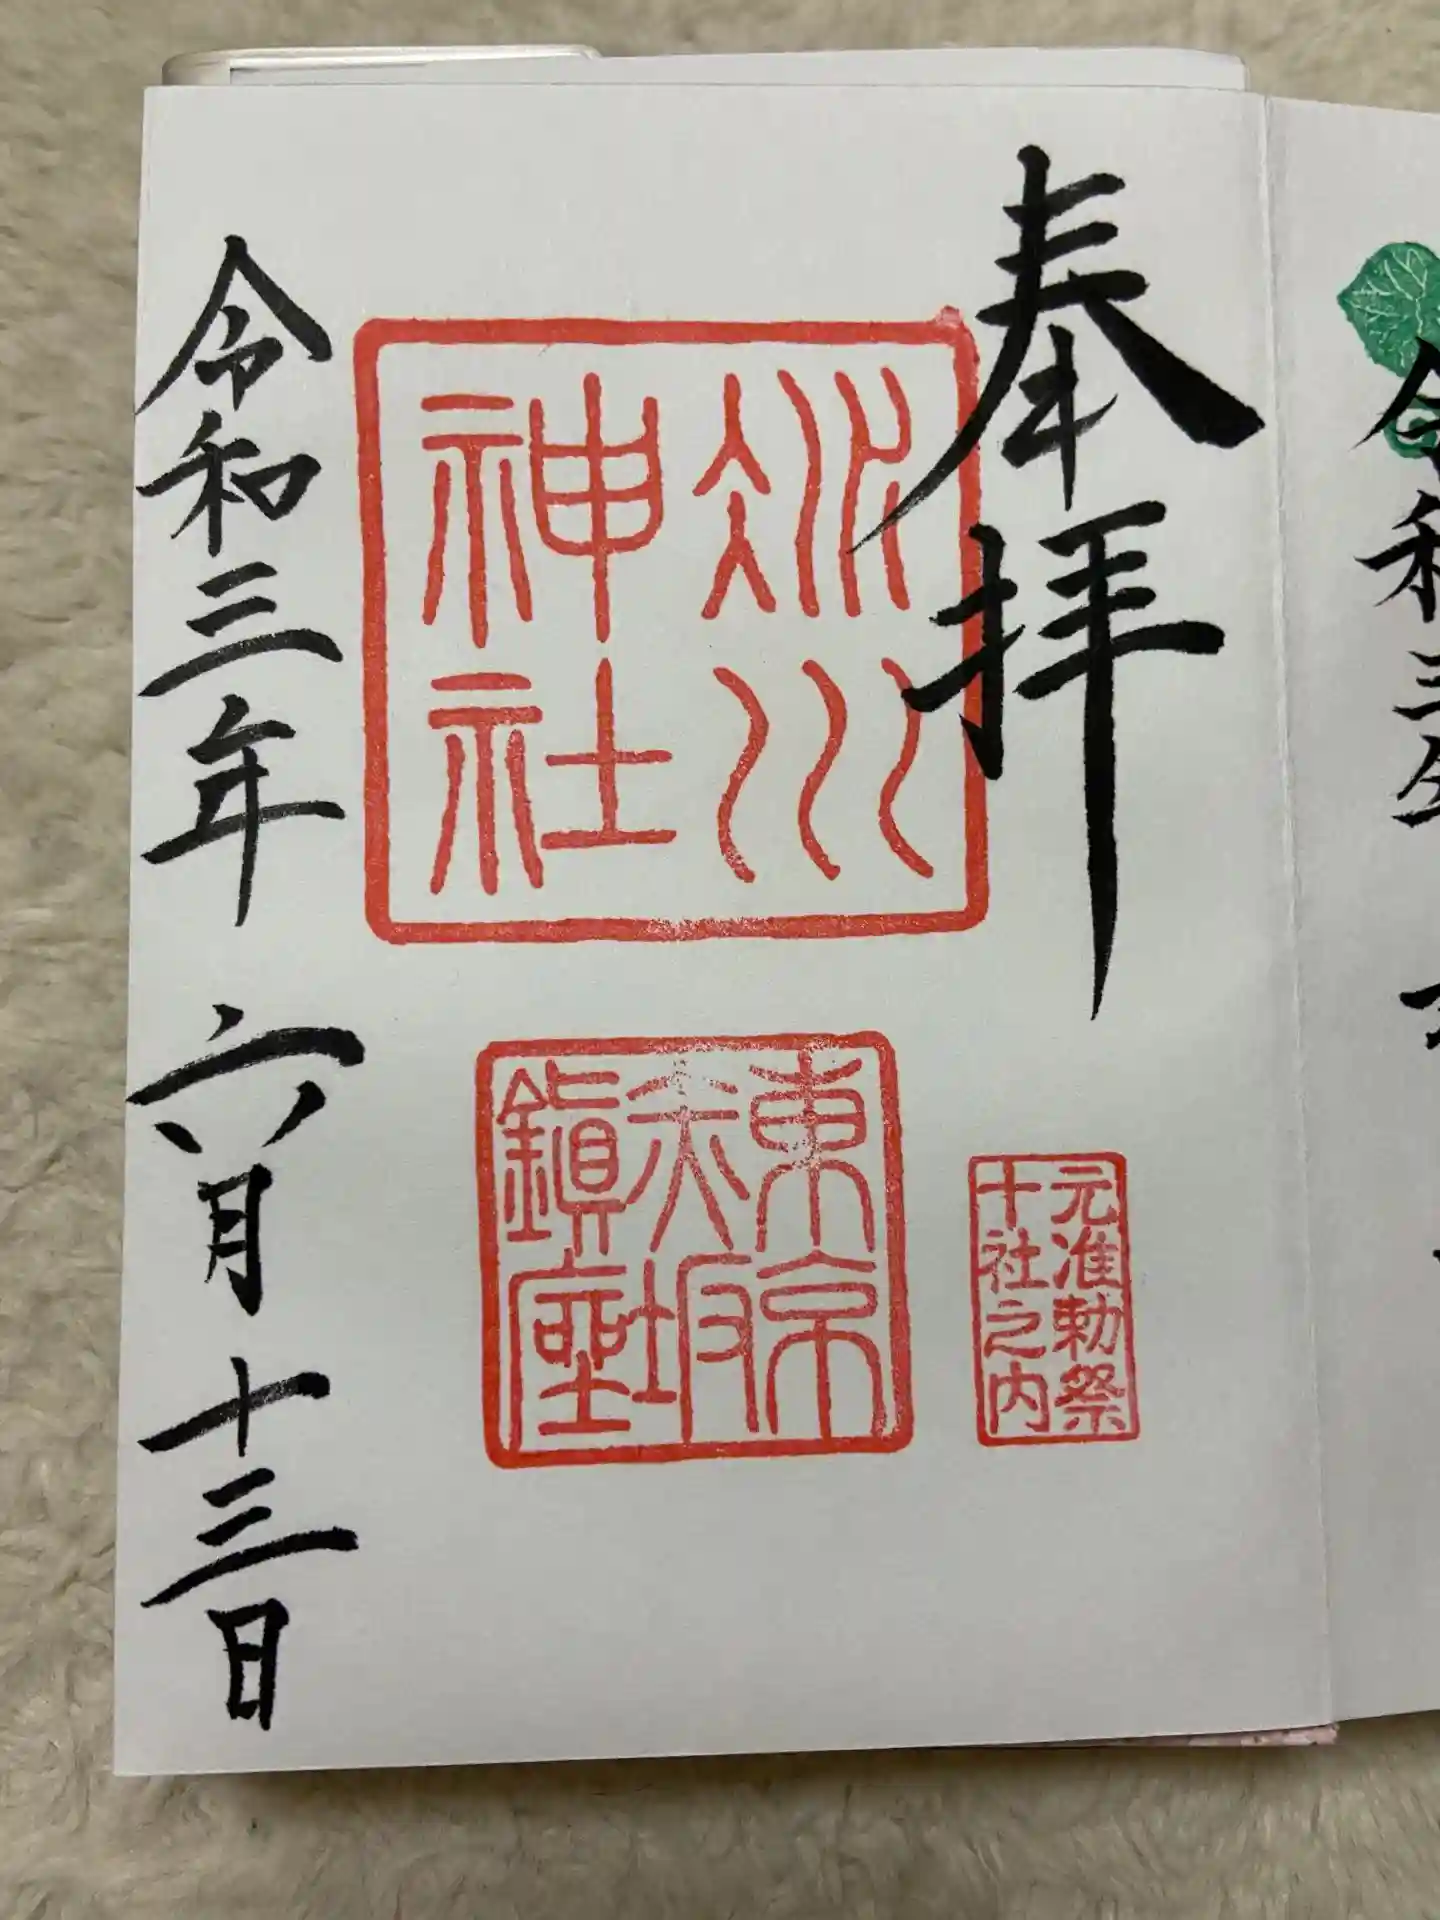 奉拝
氷川
神社
元准勅祭
十社之内
東京
赤坂
鎮座
令和三年 六月 十三日
令和三年